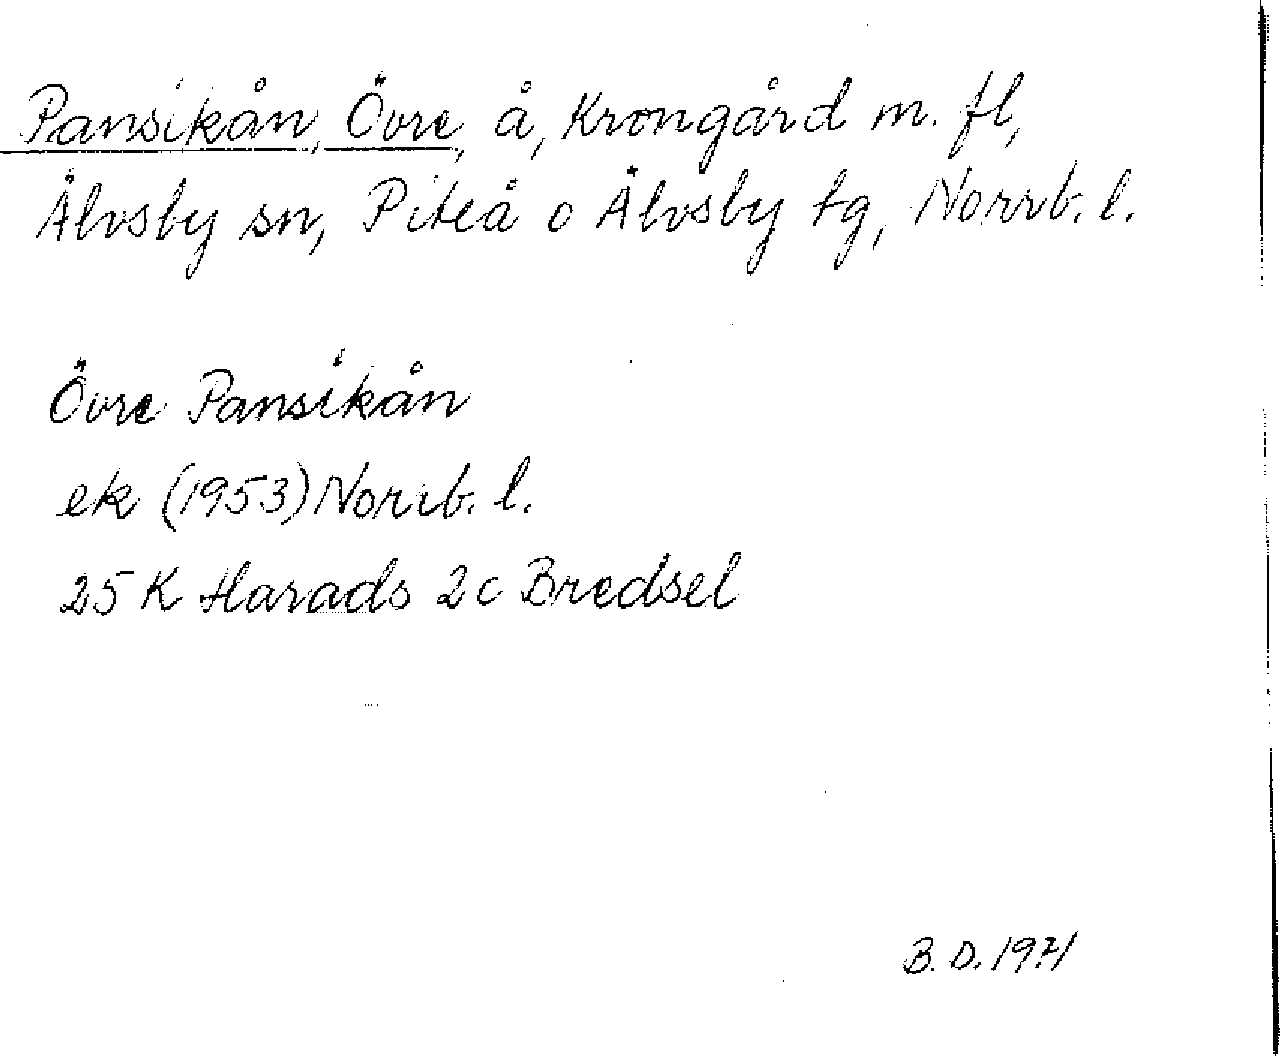 Pansikån, Övre, å, Krongård m. fl,
Älvsby sn, Piteå o Älvsby tg, Norrb. l.
Övre Pansikån
ek (1953) Norrb. l.
25 K Harads 2c Bredsel
B. D. 1971